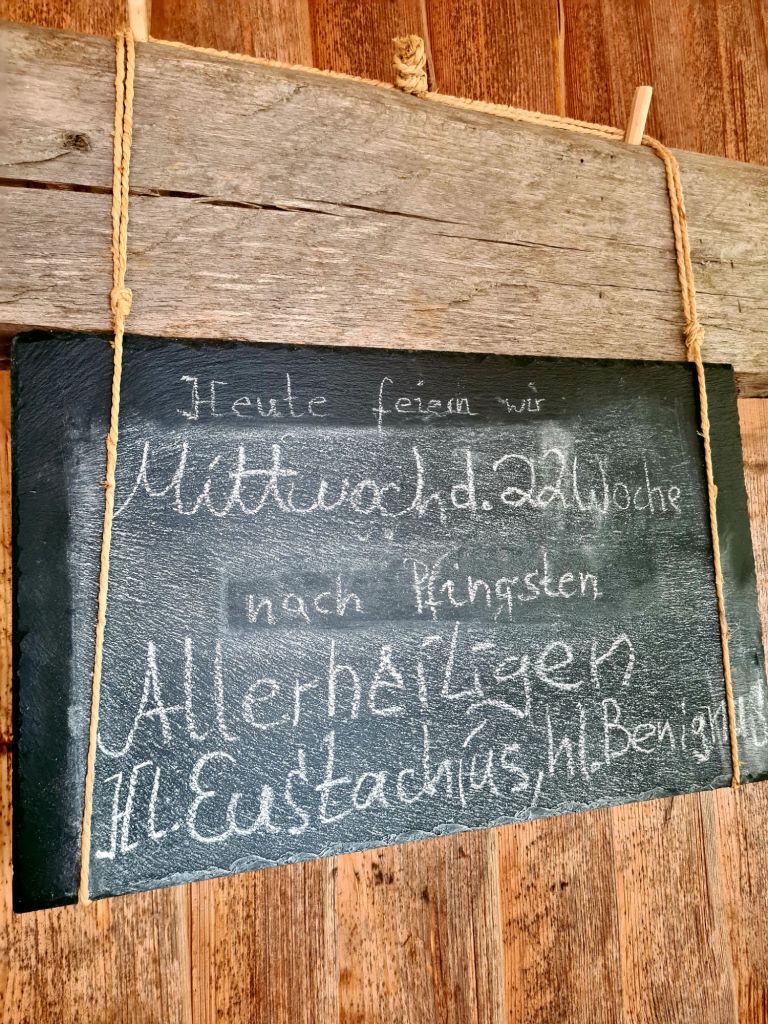 Heute feiern wir
Mittwoch d. 22 Woche
nach Pfingsten
Allerheiligen
Hl. Eustachius, hl. Benignus